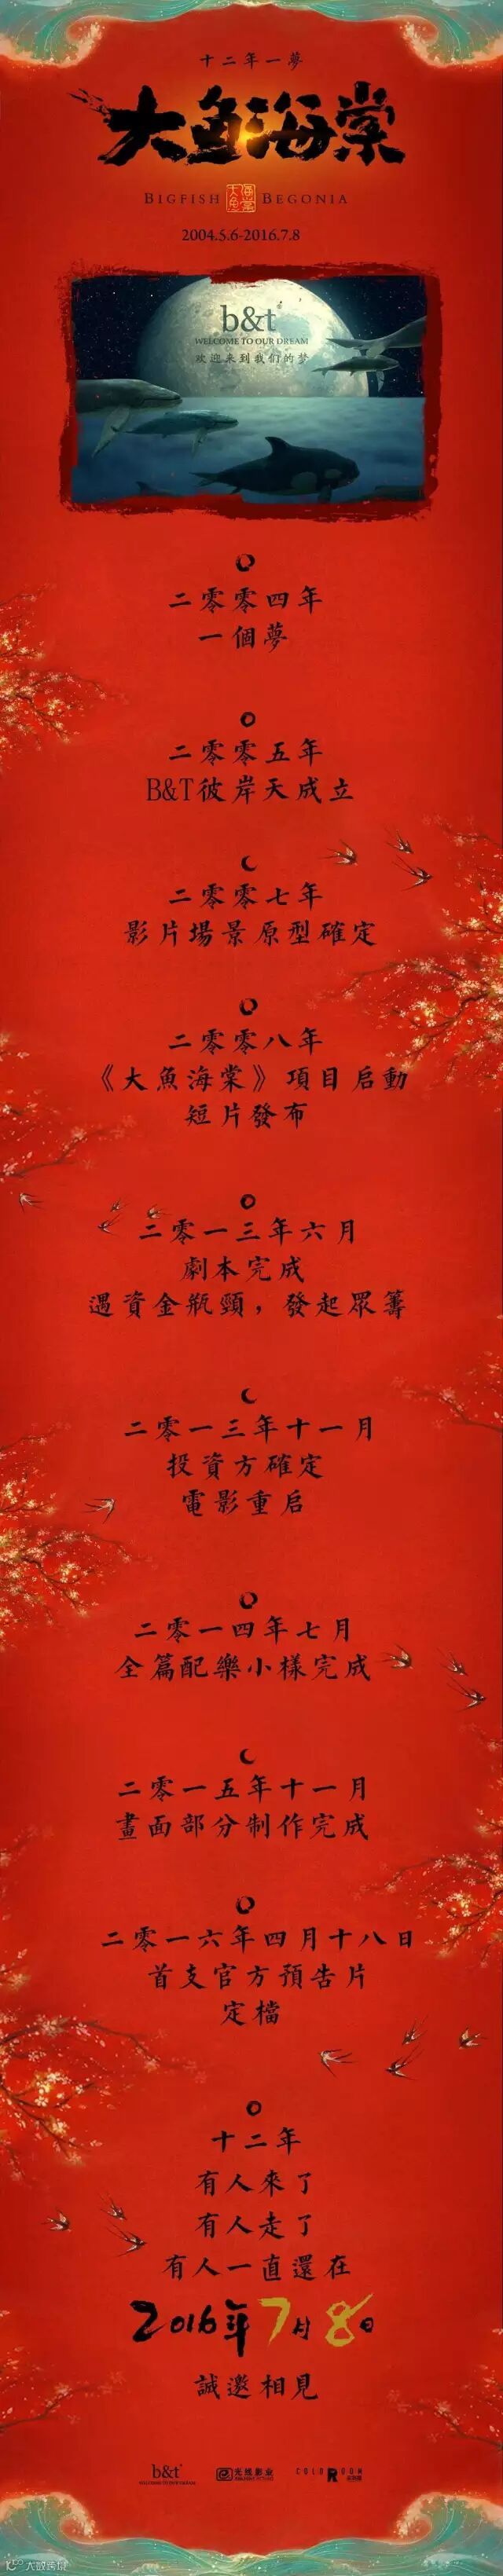 十二年一夢
大魚海棠
BIGFISH 大魚海棠 BEGONIA
2004.5.6-2016.7.8
b&t
WELCOME TO OUR DREAM
欢迎来到我们的梦
二零零四年
一個夢
二零零五年
B&T彼岸天成立
二零零七年
影片場景原型確定
二零零八年
《大魚海棠》項目启動
短片發布
二零一三年六月
劇本完成
遇資金瓶頸，發起眾籌
二零一三年十一月
投資方確定
電影重启
二零一四年七月
全篇配樂小樣完成
二零一五年十一月
畫面部分制作完成
二零一六年四月十八日
首支官方預告片
定檔
十二年
有人來了
有人走了
有人一直還在
2016年7月8日
誠邀相見
b&t 光线影业 COLOROOM